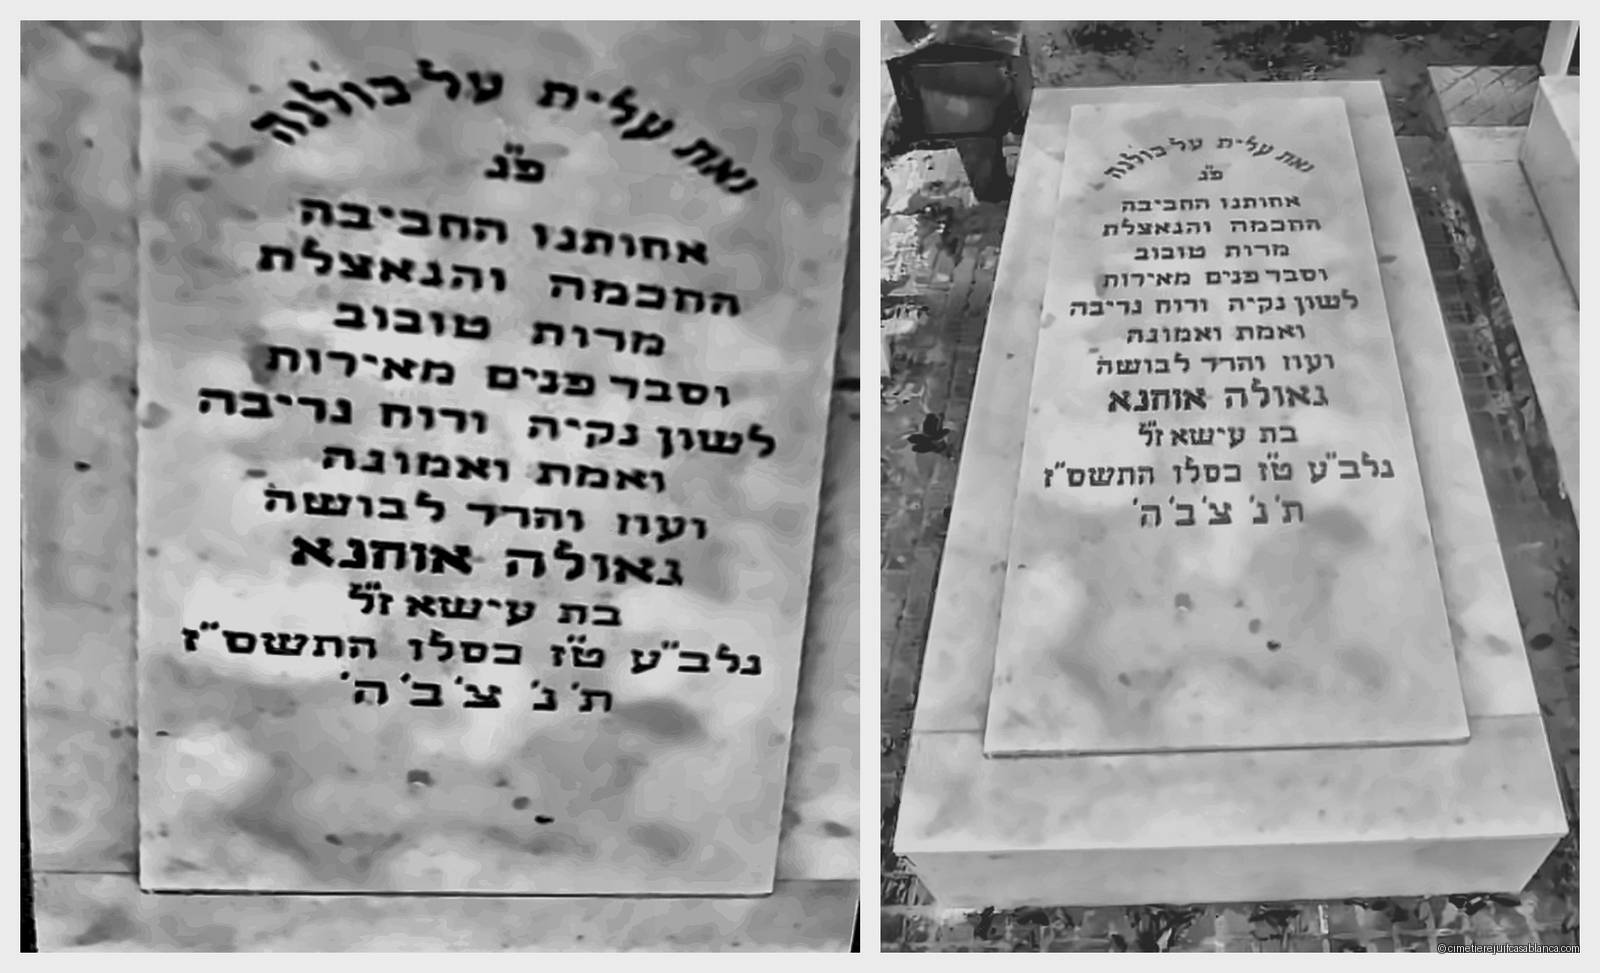 ואת עלית על כולנה
פ"נ
אחותנו החביבה
החכמה והנאצלת
מדות טובוב
וסבר פנים מאירות
לשון נקיה ורוח נדיבה
ואמת ואמונה
ועוז והדר לבושה
גאולה אוחנא
בת עישא ז"ל
נלב"ע ט"ז כסלו התשס"ז
ת' נ' צ' ב' ה'
ואת עלית על כולנה
פ"נ
אחותנו החביבה
החכמה והנאצלת
מדות טובוב
וסבר פנים מאירות
לשון נקיה ורוח נדיבה
ואמת ואמונה
ועוז והדר לבושה
גאולה אוחנא
בת עישא ז"ל
נלב"ע ט"ז כסלו התשס"ז
ת' נ' צ' ב' ה'
©cimetierejuifcasablanca.com